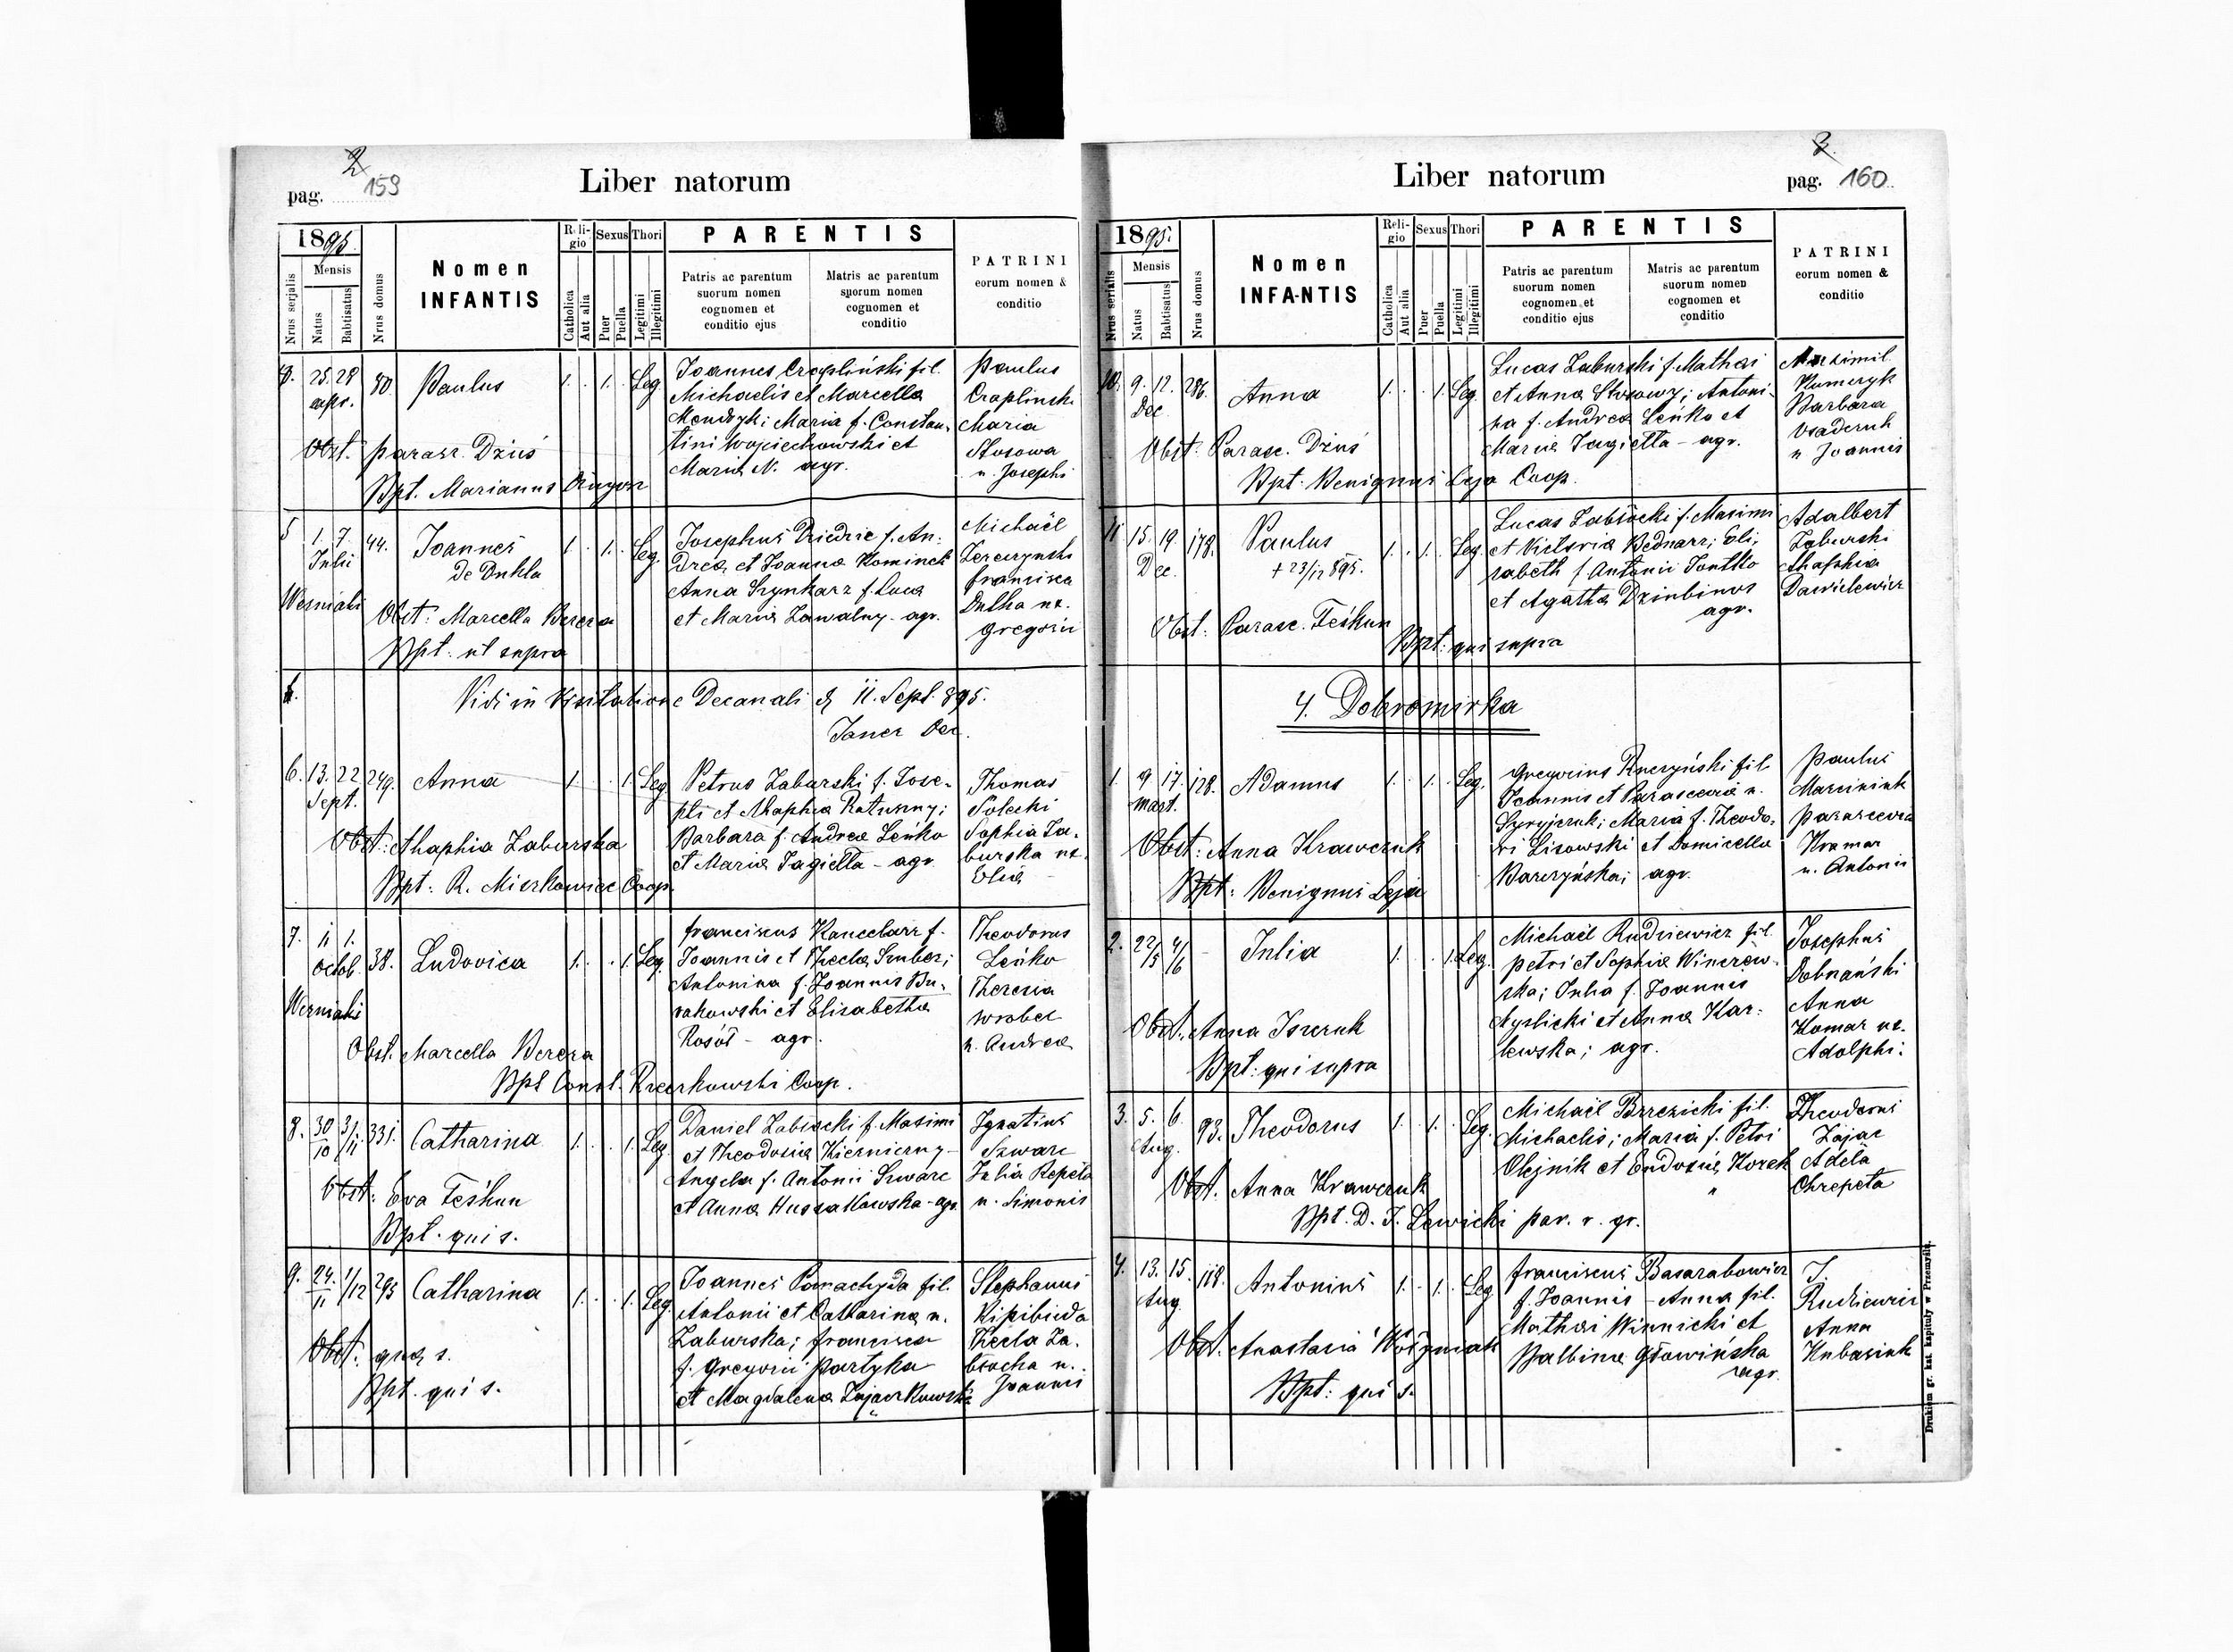 pag. 2 159
Liber natorum
1895.
Nrus serjalis
Mensis
Natus
Babtisatus
Nrus domus
Nomen
INFANTIS
Reli-
gio
Catholica
Aut alia
Sexus
Puer
Puella
Thori
Legitimi
Illegitimi
PARENTIS
Patris ac parentum
suorum nomen
cognomen et
conditio ejus
Matris ac parentum
suorum nomen
cognomen et
conditio
PATRINI
eorum nomen &
conditio
25. 28 80. Paulus 1. . 1. Leg.
apr.
Obst. Parasc. Dziuś
Bpt. Marianus
Joannes Czapliński fil.
Michaelis et Marcella
Maria f. Constan-
tini Wojciechowski et
Maria N. agr.
Paulus
Czaplinski
Maria
Stosowa
u. Josephi
5 1. 7. 44. Joannes 1. . 1. Leg.
Julii de Dukla
Obst: Marcella Bereza
Bpt. ut supra
Josephus Dziedzic f. An-
drea et Joanna Kominek
Anna Szynkarz f. Luca
et Maria Zawalny - agr.
Michaël
francisca
Dulha ux.
Gregorii
Vidi in Visitatione Decanali d. 11. Sept. 895.
Janer Dec.
6. 13. 22 249. Anna 1. . . 1. Leg
Sept.
Obst: Ahaphia Zaburska
Bpt: R. Mierkowicz Coop.
Petrus Zaburski f. Jose-
phi et Ahaphia Raturny;
Barbara f. Andrea Leńko
et Maria Jagiełła - agr.
Thomas
Solecki
Sophia Za-
burska ux.
Elia
7. 11 1. 38. Ludovica 1. . . 1. Leg.
Octob.
Werniaki
Obst. Marcella Bereza
Bpt Const. Kaczkowski Coop.
franciscus Kancelarz f.
Joannis et Thecla Szuber;
Antonina f. Joannis Bu-
rakowski et Elisabetha
Rosół - agr.
Theodorus
Leńko
Theresia
Wrobel
u. Andrea
8. 30/10 3/11 331. Catharina 1. . . 1. Leg.
Obst: Eva Feśkun
Bpt. qui s.
Daniel Zabłocki f. Maximi
et Theodosia Kiernierny -
Angela f. Antonii Szwarc
et Anna Hussakowska - agr.
Ignatius
Szwarc
Julia Repeta
u. Simonis
9. 24./11 1/12 293 Catharina 1. . . 1. Leg.
Obst. qua s.
Bpt. qui s.
Joannes Panachyda fil.
Antonii et Catharina n.
Zaburska; francisca
f. Gregorii Partyka
et Magdalena Zajaczkowska
Stephanus
Kipibida
Thecla Za-
błocka u.
Joannis
pag. 3. 160.
Liber natorum
1895.
Nrus serjalis
Mensis
Natus
Babtisatus
Nrus domus
Nomen
INFANTIS
Reli-
gio
Catholica
Aut alia
Sexus
Puer
Puella
Thori
Legitimi
Illegitimi
PARENTIS
Patris ac parentum
suorum nomen
cognomen et
conditio ejus
Matris ac parentum
suorum nomen
cognomen et
conditio
PATRINI
eorum nomen &
conditio
10. 9. 12. 286. Anna 1. . . 1. Leg.
Dec
Obst: Parasc. Dziuś
Bpt: Benignus Leja Coop.
Lucas Zaburski f. Mathai
et Anna Antoni-
na f. Andrea Leńko et
Maria Jagiełła - agr.
Maximil.
Barbara
Osadczuk
u Joannis
11 15. 19 178. Paulus 1. . 1. Leg.
Dec. + 23/12 895.
Obst: Parasc. Feśkun
Bpt: qui supra
Lucas Zabłocki f. Maximi
et Victoria Bednarz; Eli-
zabeth f Antonii
et Agatha Dziubinos
agr.
Adalbert
Zaburski
Ahaphia
Dawidewicz
4. Dobromirka
1. 9 17. 128. Adamus 1. . 1. Leg.
Mart.
Obst: Anna Krawczuk
Bpt: Benignus Leja
Gregorius Ruczyński fil
Joannis et Parasceva n.
Maria f. Theodo-
ri Lisowski et Domicella
Barczyńska; agr.
Paulus
Marciniuk
Parasceva
Kramar
u. Antonii
2. 22/5 4/6 - Julia 1. . . 1. Leg.
Obst. Anna Iszczuk
Bpt: qui supra
Michaël Rudziewicz fil.
Petri et Sophia Winczew-
ska; Julia f. Joannis
Nyslicki et Anna Kar-
lewska; agr.
Josephus
Dobnański
Anna
Komar ux.
Adolphi.
3. 5. 6. 93. Theodorus 1. . 1. Leg.
Aug.
Obst. Anna Krawczuk
Bpt. D. J. Lewicki par. r. gr.
Michaël Brzezicki fil.
Michaelis; Maria f. Petri
Olejnik et Eudosia Korch
Theodorus
Zając
Adela
Chrepeta
4. 13. 15. 118. Antonius 1. . 1. Leg
Aug.
Obst. Anastasia Woźniak
Bpt: qui s.
franciscus Basarabowicz
f. Joannis - Anna fil.
Mathai Winnicki et
Balbina Głowińska
agr.
J.
Rudziewicz
Anna
Kubasiuk
Drukiem gr. kat. kapituły w Przemyślu.